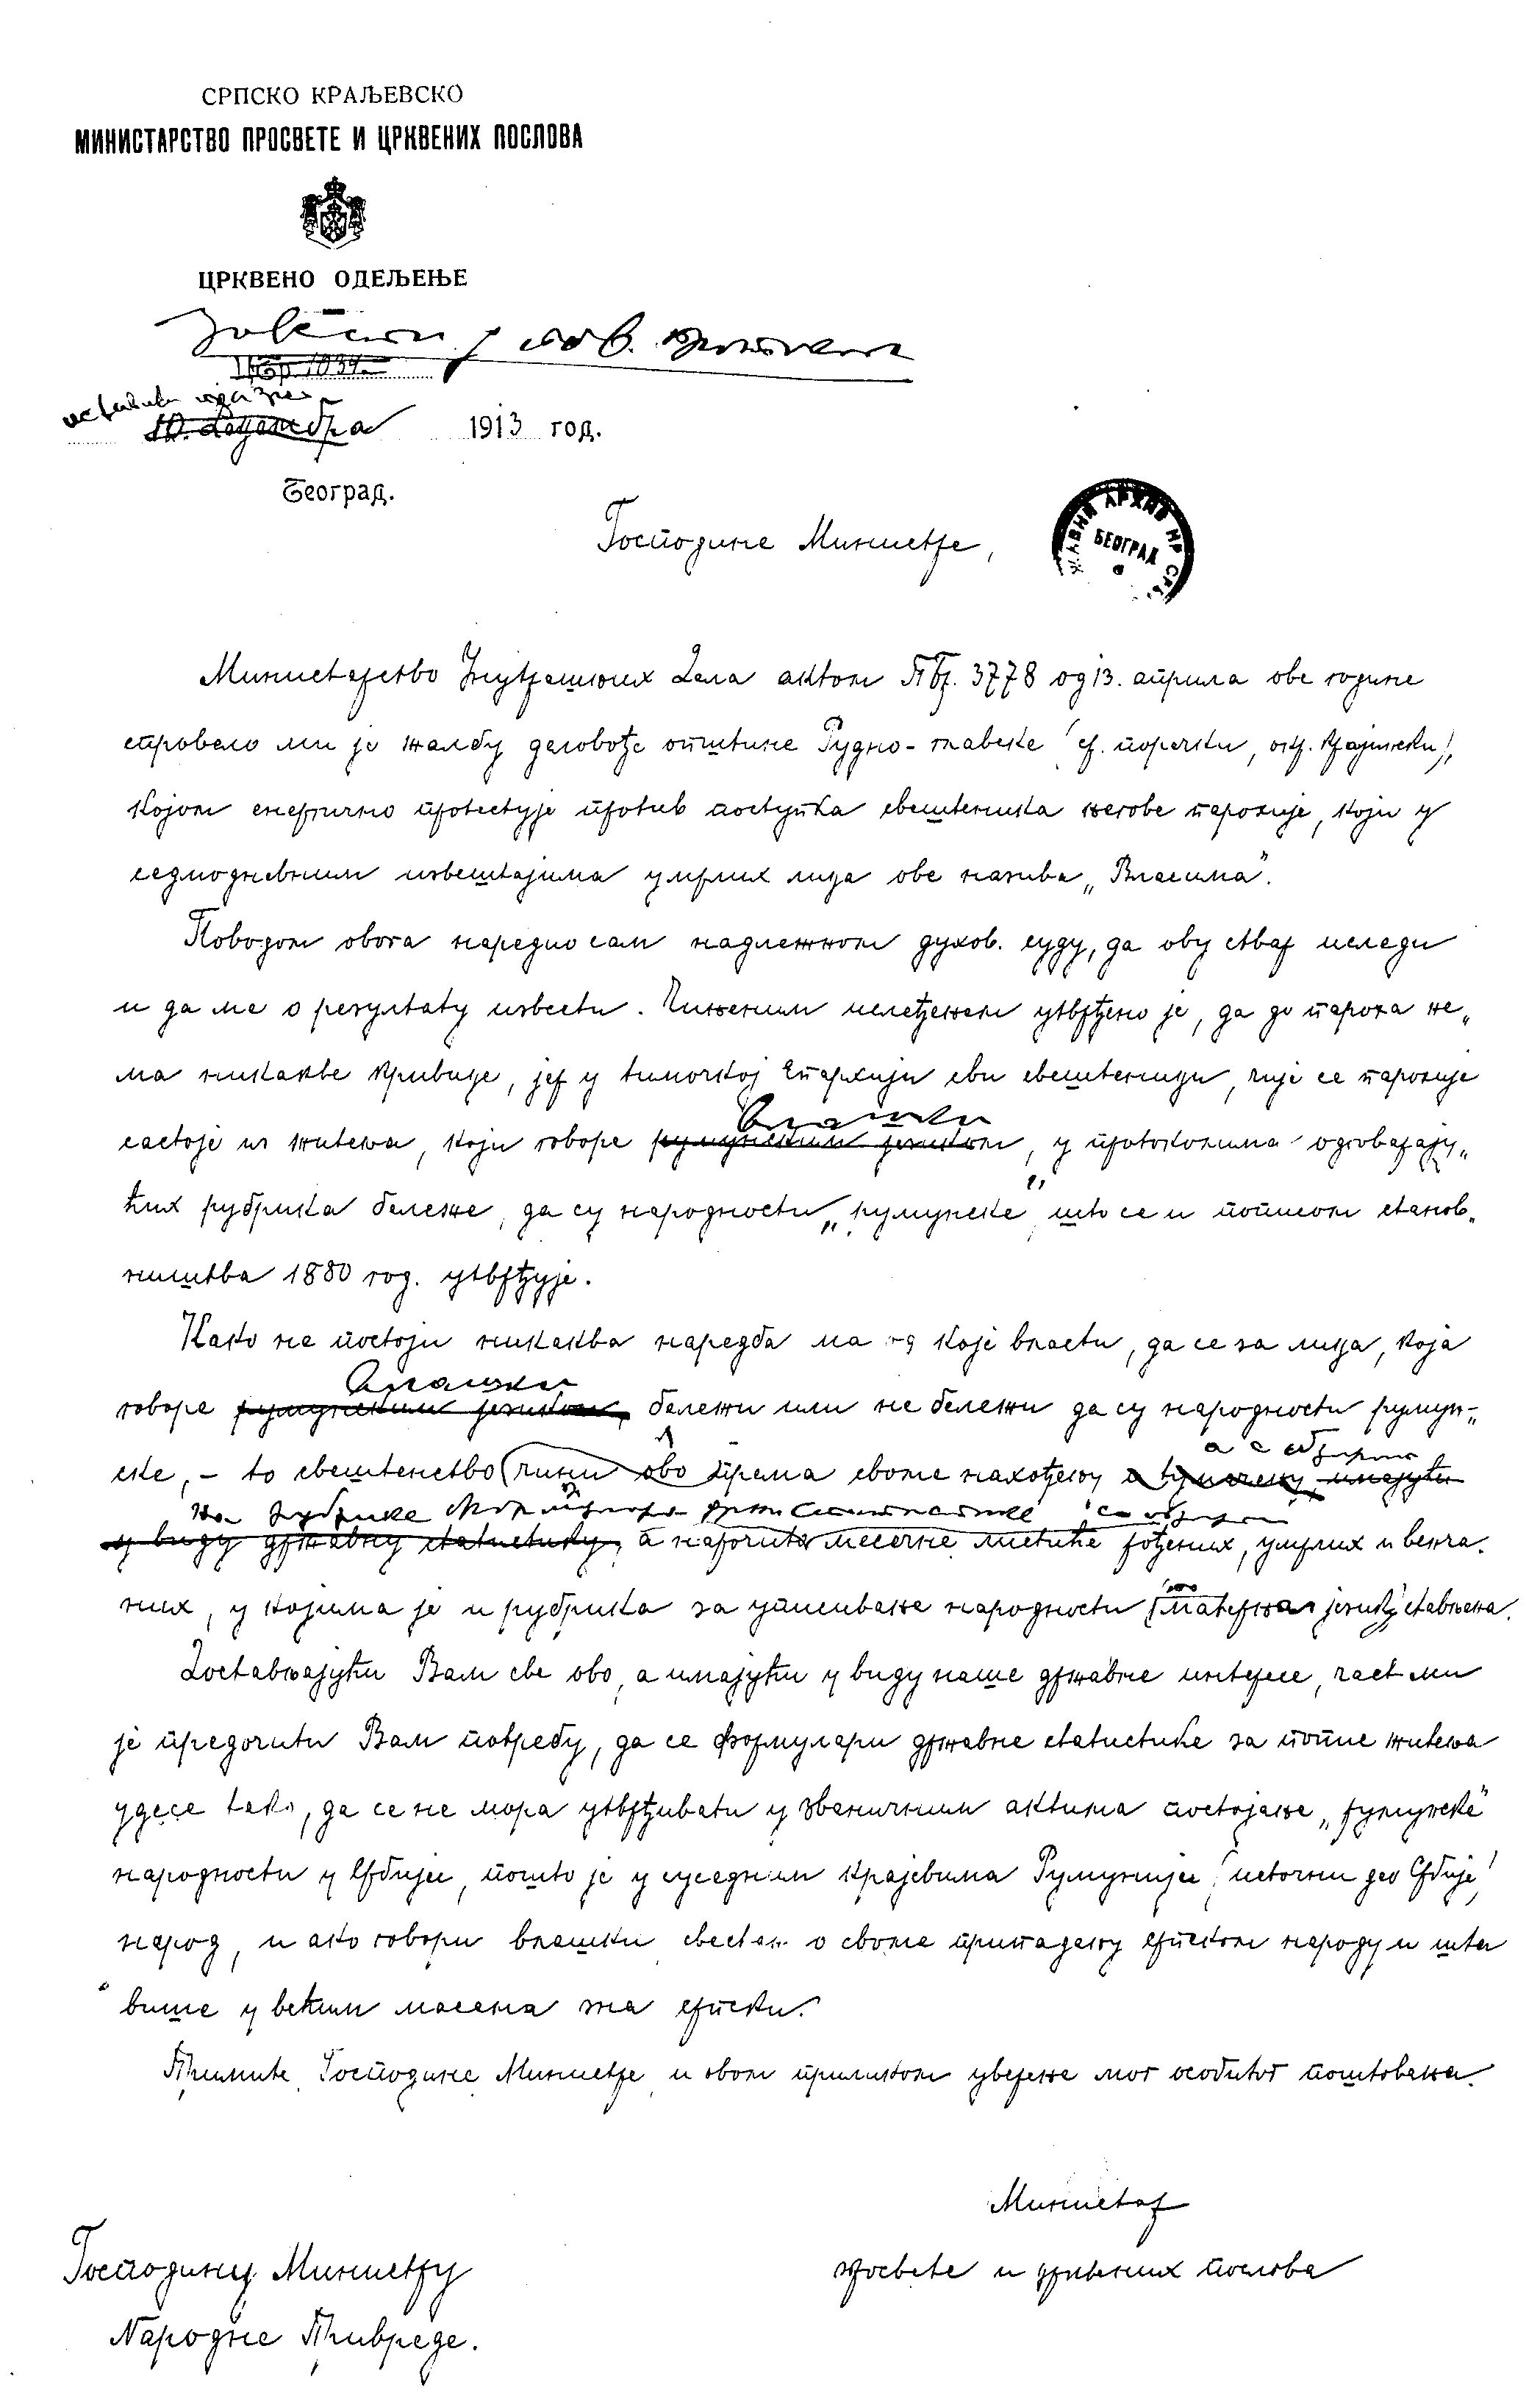 СРПСКО КРАЉЕВСКО
МИНИСТАРСТВО ПРОСВЕТЕ И ЦРКВЕНИХ ПОСЛОВА
ЦРКВЕНО ОДЕЉЕЊЕ
1913 год.
Београд.
Господине Министре,
АРХИВ НР
БЕОГРАД
Министарство Унутрашњих Дела актом ПБр. 3778 од 13. априла ове године
спровело ми је жалбу деловође општине Рудно-главске (ср. поречки, окр. крајински),
којом енергично протестује против поступка свештеника његове парохије, који у
седмодневним извештајима умрлих лица ове назива „Власима".
Поводом овога наредио сам надлежном духов. суду, да ову ствар иследи
и да ме о резултату извести. Чињеним ислеђењем утврђено је, да до пароха не„
ма никакве кривице, јер у тимочкој Епархији сви свештеници, чије се парохије
влашки
састоје из житеља, који говоре румунским језиком, у протоколима одговарају„
ћих рубрика бележе, да су народности „румунске", што се и пописом станов„
ништва 1880 год. утврђује.
Како не постоји никаква наредба ма од које власти, да се за лица, која
влашки
говоре румунским језиком, бележи или не бележи да су народности румун-„
а с обзиром
ске, – то свештенство чини ово према своме нахођењу имајући
на рубрике
у виду државну статистику, а нарочито месечне листиће рођених, умрлих и венча„
них, у којима је и рубрика за уписивање народности (матерњи језик) стављена.
Достављајући Вам све ово, а имајући у виду наше државне интересе, част ми
је предочити Вам потребу, да се формулари државне статистике за попис житеља
удесе тако, да се не мора утврђивати у званичним актима постојање „румунске"
народности у Србији, пошто је у суседним крајевима Румуније (источни део Србије)
народ, и ако говори влашки свестан о своме припадању српском народу и шта
више у већим масама зна српски.
Примите, Господине Министре и овом приликом уверење мог особитог поштовања.
Министар
просвете и црквених послова
Господину Министру
Народне Привреде.